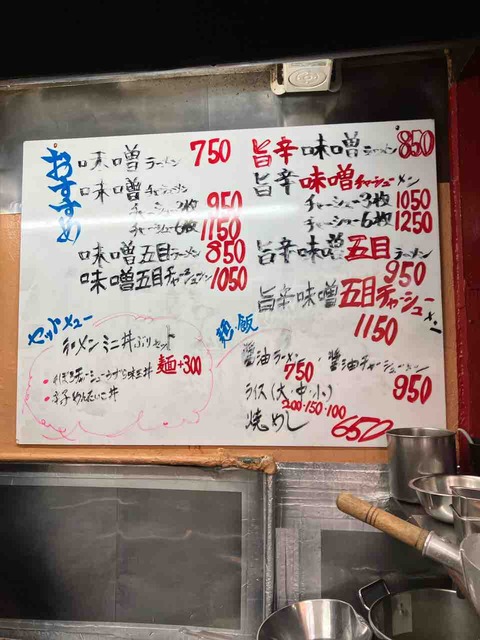 おすすめ
味噌ラーメン 750
味噌チャーシューメン
チャーシュー3枚 950
チャーシュー6枚 1150
味噌五目ラーメン 850
味噌五目チャーシューメン 1050
旨辛味噌ラーメン 850
旨辛味噌チャーシューメン
チャーシュー3枚 1050
チャーシュー6枚 1250
旨辛味噌五目ラーメン
950
旨辛味噌五目チャーシューメン
1150
セットメニュー
ラーメンミニ丼ぶりセット
麺+300
・チャーシューうずら味玉丼
・辛子めんたいこ丼
麺・飯
醤油ラーメン・醤油チャーシューメン
750
950
ライス(大・中・小)
200・150・100
焼めし 650